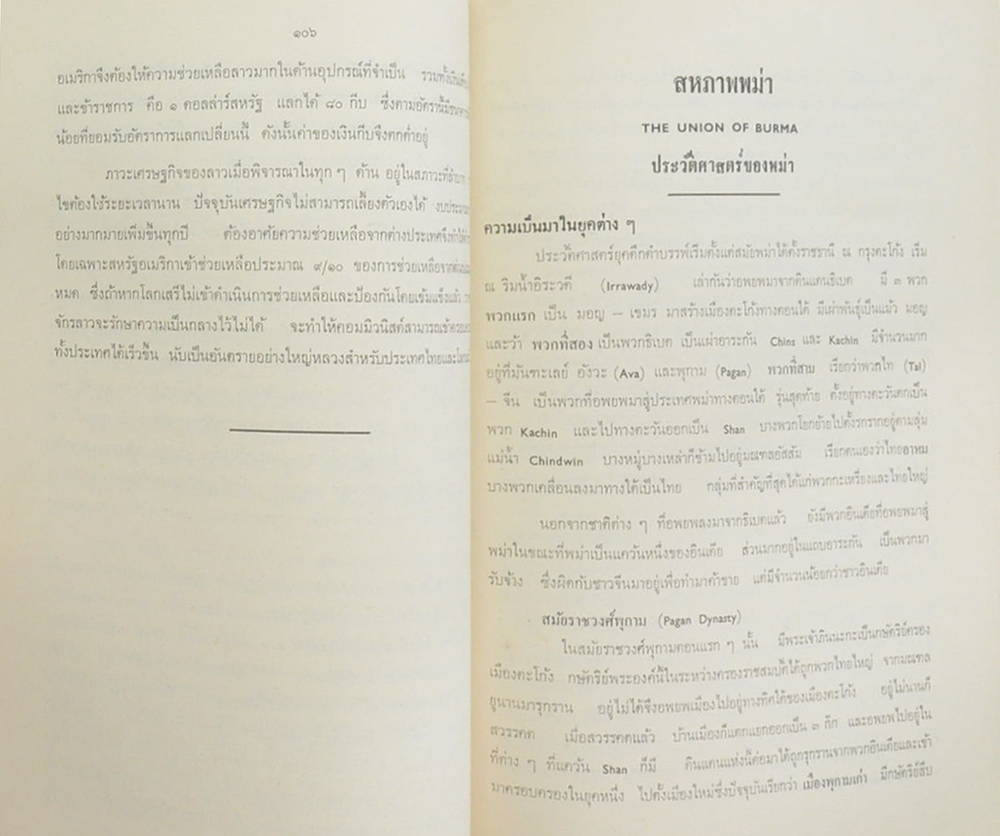 ๑๐๖
อเมริกาจึงต้องให้ความช่วยเหลือลาวมากในด้านอุปกรณ์ที่จำเป็น รวมทั้งเงิน
และข้าราชการ คือ ๑ ดอลล่าร์สหรัฐ แลกได้ ๘๐ กีบ ซึ่งตามอัตรานี้
น้อยที่ยอมรับอัตราการแลกเปลี่ยนนี้ ดังนั้นค่าของเงินกีบจึงตกต่ำอยู่
ภาวะเศรษฐกิจของลาวเมื่อพิจารณาในทุก ๆ ด้าน อยู่ในสภาวะที่
ไขต้องใช้ระยะเวลานาน ปัจจุบันเศรษฐกิจไม่สามารถเลี้ยงตัวเองได้
อย่างมากมายเพิ่มขึ้นทุกปี ต้องอาศัยความช่วยเหลือจากต่างประเทศ
โดยเฉพาะสหรัฐอเมริกาเข้าช่วยเหลือประมาณ ๙/๑๐ ของการช่วยเหลือจาก
หมด ซึ่งถ้าหากโลกเสรีไม่เข้าดำเนินการช่วยเหลือและป้องกันโดยเข้มแข็งแล้ว
จักรลาวจะรักษาความเป็นกลางไว้ไม่ได้ จะทำให้คอมมิวนิสต์สามารถเข้า
ทั้งประเทศได้เร็วขึ้น นับเป็นอันตรายอย่างใหญ่หลวงสำหรับประเทศไทย
สหภาพพม่า
THE UNION OF BURMA
ประวัติศาสตร์ของพม่า
ความเป็นมาในยุคต่าง ๆ
ประวัติศาสตร์ยุคดึกดำบรรพ์เริ่มตั้งแต่สมัยพม่าได้ตั้งราชธานี ณ กรุงตะโก้ง เริ่ม
ณ ริมน้ำอิระวดี (Irrawady) เล่ากันว่าอพยพมาจากดินแดนธิเบต มี ๓ พวก
พวกแรก เป็น มอญ – เขมร มาสร้างเมืองตะโก้งทางตอนใต้ มีเผ่าพันธุ์เป็นแม้ว มอญ
และว้า พวกที่สอง เป็นพวกธิเบต เป็นเผ่าอาระกัน Chins และ Kachin มีจำนวนมาก
อยู่ที่มันฑะเลย์ อังวะ (Ava) และพุกาม (Pagan) พวกที่สาม เรียกว่าพวกไท (Tai)
– จีน เป็นพวกที่อพยพมาสู่ประเทศพม่าทางตอนใต้ รุ่นสุดท้าย ตั้งอยู่ทางตะวันตกเป็น
พวก Kachin และไปทางตะวันออกเป็น Shan บางพวกโยกย้ายไปตั้งรกรากอยู่ตามลุ่ม
แม่น้ำ Chindwin บางหมู่บางเหล่าก็ข้ามไปอยู่มณฑลอัสสัม เรียกตนเองว่าไทยอาหม
บางพวกเคลื่อนลงมาทางใต้เป็นไทย กลุ่มที่สำคัญที่สุดได้แก่พวกกะเหรี่ยงและไทยใหญ่
นอกจากชาติต่าง ๆ ที่อพยพลงมาจากธิเบตแล้ว ยังมีพวกอินเดียที่อพยพมาสู่
พม่าในขณะที่พม่าเป็นแคว้นหนึ่งของอินเดีย ส่วนมากอยู่ในแถบอาระกัน เป็นพวกมา
รับจ้าง ซึ่งผิดกับชาวจีนมาอยู่เพื่อทำมาค้าขาย แต่มีจำนวนน้อยกว่าชาวอินเดีย
สมัยราชวงศ์พุกาม (Pagan Dynasty)
ในสมัยราชวงศ์พุกามตอนแรก ๆ นั้น มีพระเจ้าภินนะกะเป็นกษัตริย์ครอง
เมืองตะโก้ง กษัตริย์พระองค์นี้ในระหว่างครองราชสมบัติได้ถูกพวกไทยใหญ่ จากมณฑล
ยูนานมารุกราน อยู่ไม่ได้จึงอพยพเมืองไปอยู่ทางทิศใต้ของเมืองตะโก้ง อยู่ไม่นานก็
สวรรคต เมื่อสวรรคตแล้ว บ้านเมืองก็แตกแยกออกเป็น ๓ ก๊ก และอพยพไปอยู่ใน
ที่ต่าง ๆ ที่แคว้น Shan ก็มี ดินแดนแห่งนี้ต่อมาได้ถูกรุกรานจากพวกอินเดียและเข้า
มาครอบครองในยุคหนึ่ง ไปตั้งเมืองใหม่ซึ่งปัจจุบันเรียกว่า เมืองพุกามเก่า มีกษัตริย์สืบ